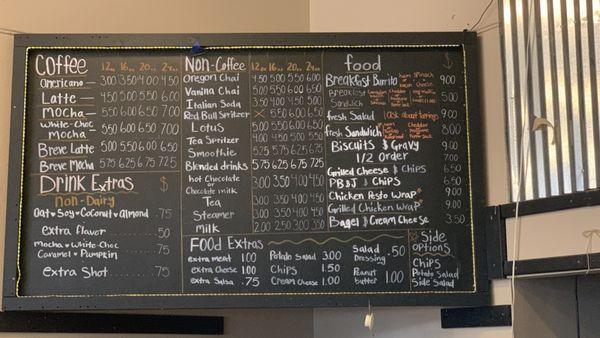 Coffee 12oz 16oz 20oz 24oz
Americano — 3.00 3.50 4.00 4.50
Latte — 4.50 5.00 5.50 6.00
Mocha — 5.50 6.00 6.50 7.00
White-Choc Mocha — 5.50 6.00 6.50 7.00
Breve Latte 5.00 5.50 6.00 6.50
Breve Mocha 5.75 6.25 6.75 7.25
Drink Extras $
Non-Dairy
Oat • Soy • Coconut • Almond .75
extra flavor .50
Mocha • White-Choc
Caramel • Pumpkin .75
extra shot .75
Non-Coffee 12oz 16oz 20oz 24oz
Oregon Chai 4.50 5.00 5.50 6.00
Vanilla Chai
Italian Soda 3.50 4.00 4.50 5.00
Red Bull Spritzer X 5.50 6.00 6.50
Lotus
Tea Spritzer 4.00 4.50 5.00 5.50
Smoothie 5.25 5.75 6.25 6.75
Blended drinks 5.75 6.25 6.75 7.25
Hot Chocolate
or
Chocolate milk 3.00 3.50 4.00 4.50
Tea
Steamer 3.00 3.50 4.00 4.50
Milk 2.00 2.50 3.00 3.50
food $
Breakfast Burrito 9.00
Breakfast Sandwich 5.00
fresh Salad ask about toppings 9.00
fresh Sandwich 8.00
Biscuits & Gravy 9.00
1/2 Order 7.00
Grilled Cheese & Chips 6.50
PB&J & Chips 6.50
Chicken Pesto Wrap 9.00
Grilled Chicken Wrap 9.00
Bagel & Cream Cheese 3.50
Food Extras
extra meat 1.00 Potato Salad 3.00 Salad Dressing .50
extra cheese 1.00 Chips 1.50
extra Salsa .75 Cream Cheese 1.00 Peanut butter 1.00
Side options
Chips
Potato Salad
Side Salad